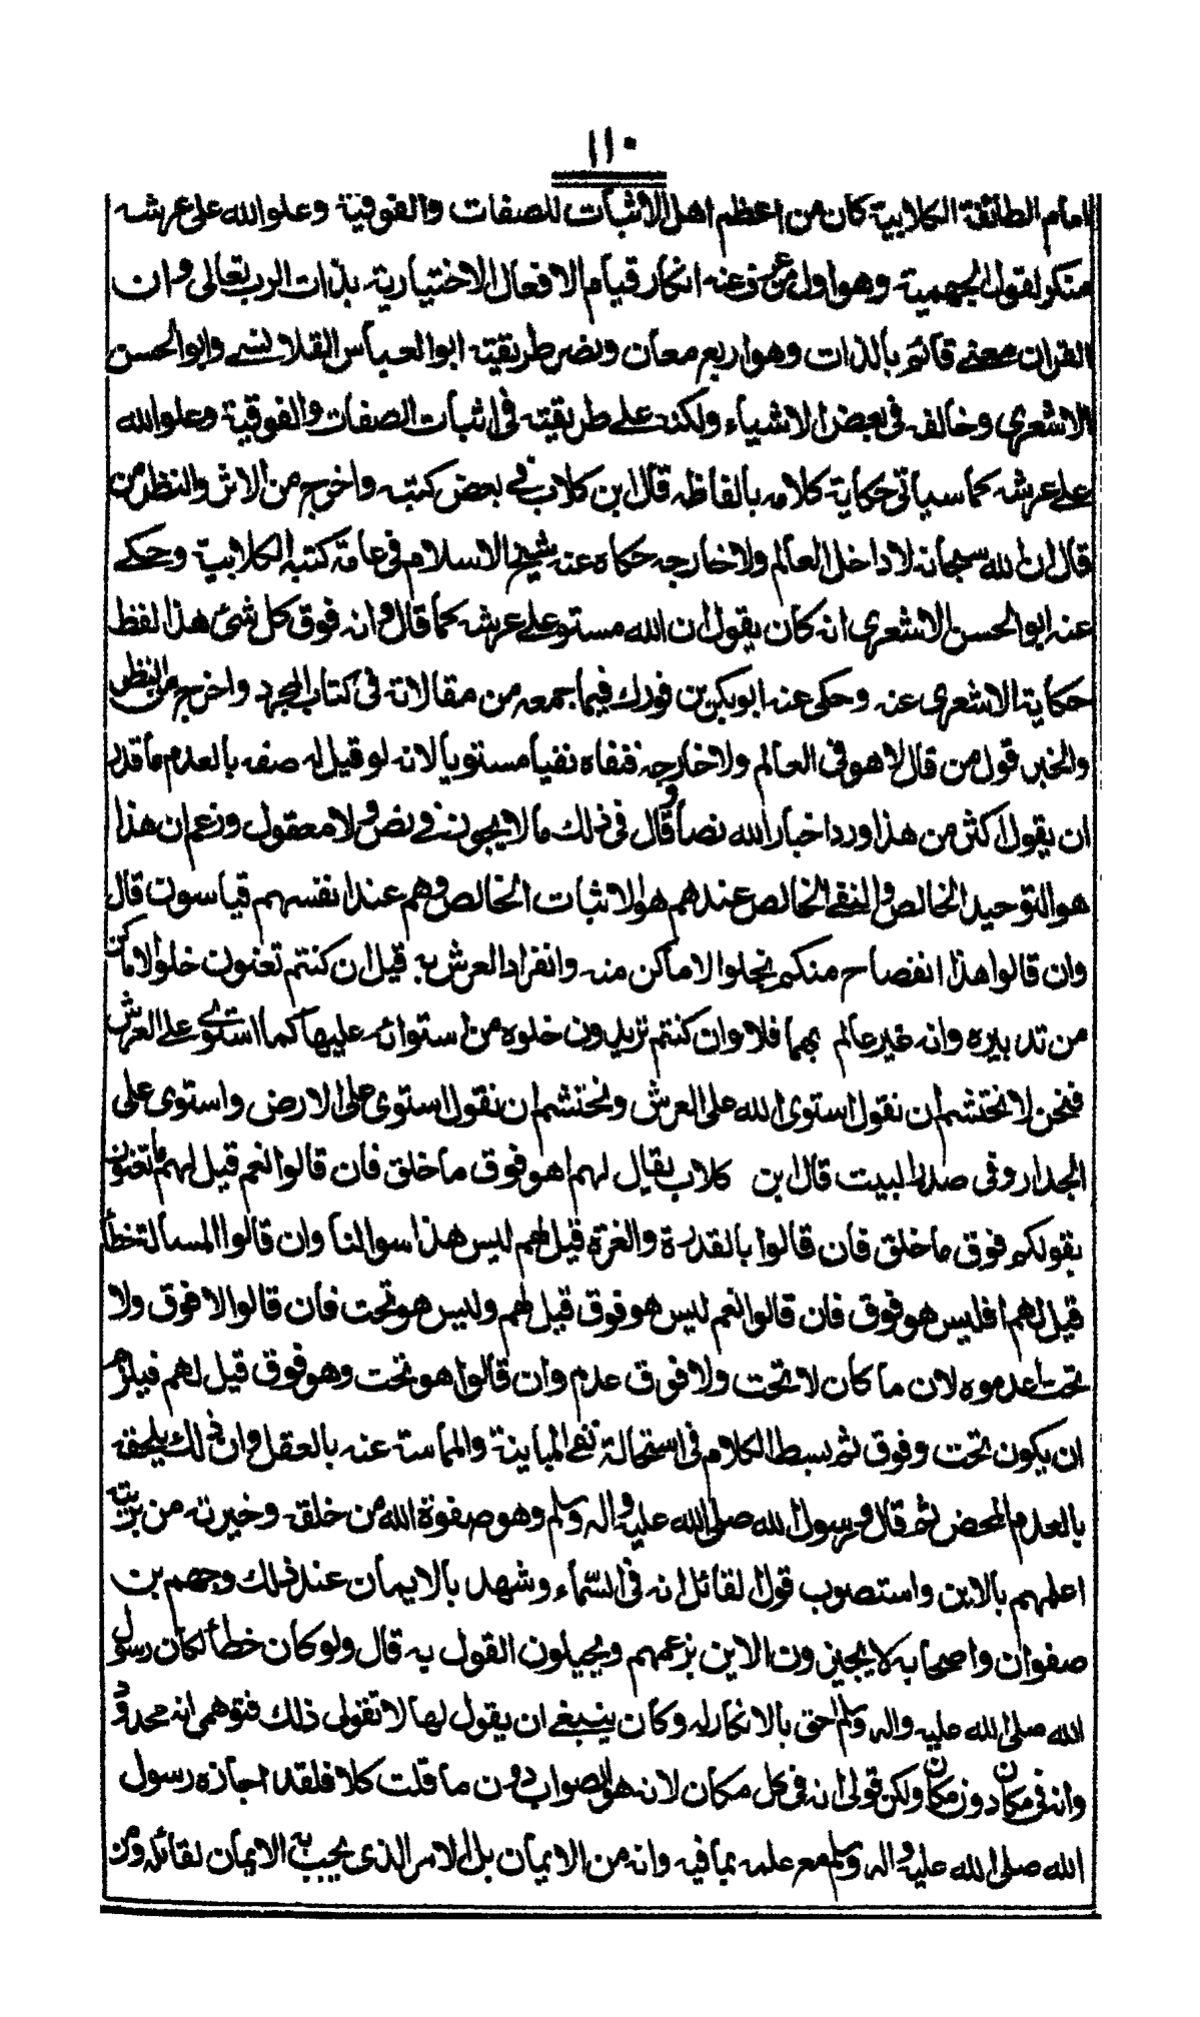 ١١٠
امام الطائفة الكلابية كان من اعظم اهل الاثبات للصفات والفوقية وعلو الله على عرشه
منكر لقول الجهمية وهو اول من عرف عنه انكار قيام الافعال الاختيارية بذات الرب تعالى وان
القران معنى قائم بالذات وهو اربع معان ونصر طريقته ابو العباس القلانسي وابو الحسن
الاشعري وخالفه في بعض الاشياء ولكنه على طريقته في اثبات الصفات والفوقية وعلو الله
على عرشه كما سياتي حكاية كلامه بالفاظه قال ابن كلاب في بعض كتبه واخرج من الاثر والنظر من
قال ان الله سبحانه لا داخل العالم ولا خارجه حكاه عنه شيخ الاسلام في عامة كتبه الكلابية وحكى
عنه ابو الحسن الاشعري انه كان يقول ان الله مستو على عرشه كما قال وانه فوق كل شئ هذا لفظ
حكاية الاشعري عنه وحكى عنه ابو بكر بن فورك فيما جمعه من مقالاته في كتاب المجرد واخرج من النظر
والخبر قول من قال لا هو في العالم ولا خارجه فنفاه نفيا مستويا لانه لو قيل له صفه بالعدم ما قدر
ان يقول اكثر من هذا ورد اخبار الله نصا وقال في ذلك ما لا يجوز في نص ولا معقول وزعم ان هذا
هو التوحيد الخالص والنفي الخالص عندهم هو الاثبات الخالص وهم عند انفسهم قياسون قال
وان قالوا هذا انفصاح منكم بخلوا الاماكن منه وانفراد العرش به قيل ان كنتم تعنون خلو الاماكن
من تدبيره وانه غير عالم بها فلا وان كنتم تريدون خلوه من استوائه عليها كما استوى على العرش
فنحن لا نحتشم ان نقول استوى الله على العرش ونحتشم ان نقول استوى على الارض واستوى على
الجدار وفي صدر البيت قال ابن كلاب يقال لهم اهو فوق ما خلق فان قالوا نعم قيل لهم ما تعنون
بقولكم فوق ما خلق فان قالوا بالقدرة والعزة قيل لهم ليس هذا سوالنا وان قالوا المسألة خطأ
قيل لهم افليس هو فوق فان قالوا نعم ليس هو فوق قيل لهم وليس هو تحت فان قالوا لا فوق ولا
تحت اعدموه لان ما كان لا تحت ولا فوق عدم وان قالوا هو تحت وهو فوق قيل لهم فيلزم
ان يكون تحت وفوق ثم بسط الكلام في استحالة نفي المباينة والمماسة عنه بالعقل وان ذلك يلحقه
بالعدم المحض ثم قال ورسول الله صلى الله عليه واله وسلم وهو صفوة الله من خلقه وخيرته من بريته
اعلمهم بالاين واستصوب قول القائل انه في السماء وشهد بالايمان عند ذلك وجهم بن
صفوان واصحابه لا يجيزون الاين بزعمهم ويحيلون القول به قال ولو كان خطأ لكان رسول
الله صلى الله عليه واله وسلم احق بالانكار له وكان ينبغي ان يقول لها لا تقولي ذلك فتوهمي انه محدود
وانه في مكان دون مكان ولكن قولى انه في كل مكان لانه هو الصواب دون ما قلت كلا فلقد اجازه رسول
الله صلى الله عليه واله وسلم مع علمه بما فيه وانه من الايمان بل الامر الذي يجب به الايمان لقائله ومن